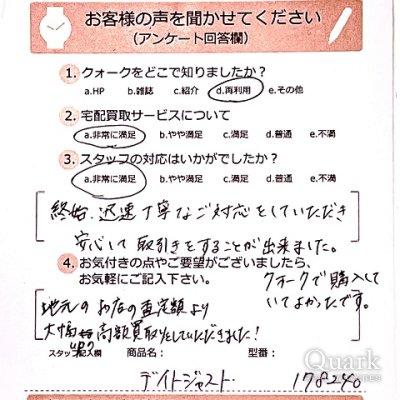 お客様の声を聞かせてください
(アンケート回答欄)
1. クォークをどこで知りましたか？
a.HP b.雑誌 c.紹介 d.再利用 e.その他
2. 宅配買取サービスについて
a.非常に満足 b.やや満足 c.満足 d.普通 e.不満
3. スタッフの対応はいかがでしたか？
a.非常に満足 b.やや満足 c.満足 d.普通 e.不満
終始、迅速丁寧なご対応をしていただき
安心して取引きをすることが出来ました。
4. お気付きの点やご要望がございましたら、
お気軽にご記入下さい。
クォークで購入して
いてよかったです。
地元のお店の査定額より
大幅 up?
高額買取りをしていただきました！
スタッフ記入欄 商品名： 型番：
デイトジャスト 178240
Quark